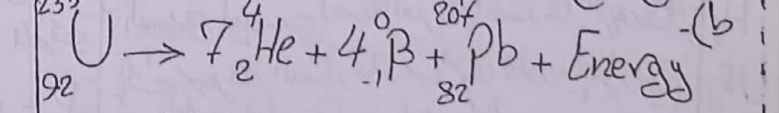 ²³⁵₉₂U → 7 ⁴₂He + 4 ⁰₋₁β + ²⁰⁷₈₂Pb + Energy -(b